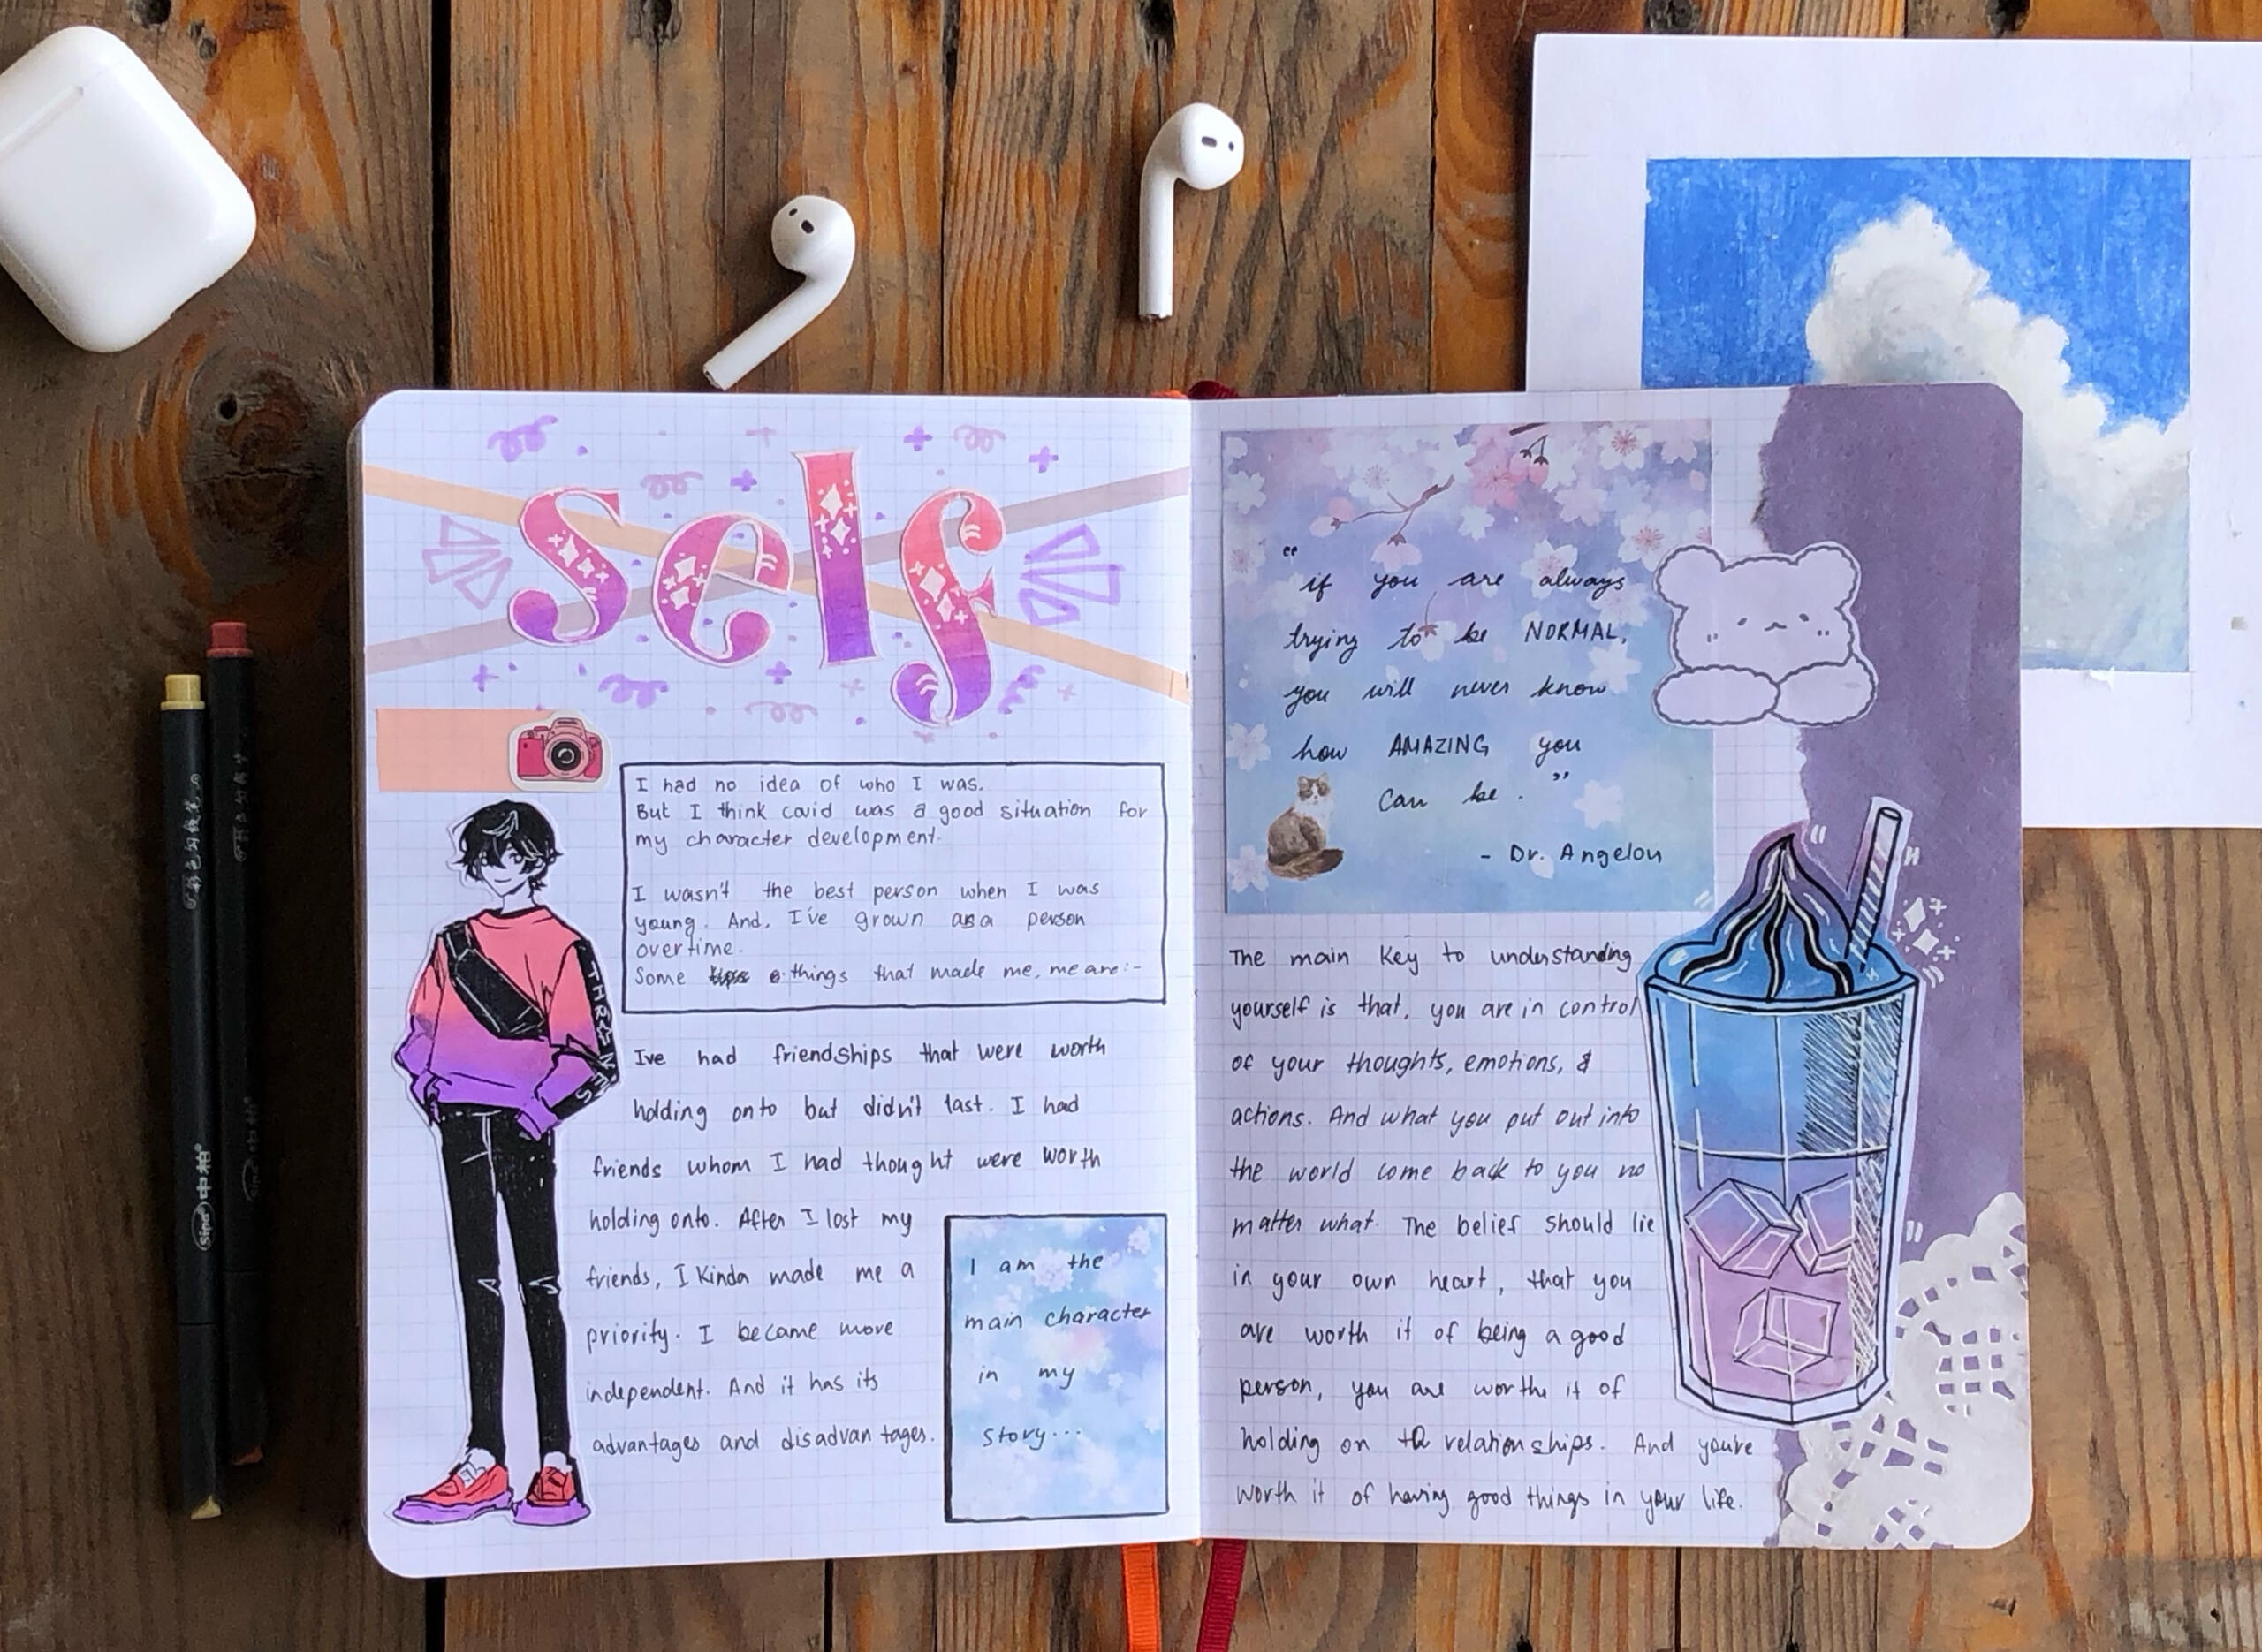 self
I had no idea of who I was.
But I think covid was a good situation for
my character development.
I wasn't the best person when I was
young. And, I've grown as a person
overtime.
Some things that made me, me are:-
Ive had friendships that were worth
holding onto but didn't last. I had
friends whom I had thought were worth
holding onto. After I lost my
friends, I Kinda made me a
priority. I became more
independent. And it has its
advantages and disadvantages.
I am the
main character
in my
story...
"
if you are always
trying to be NORMAL,
you will never know
how AMAZING you
can be."
- Dr. Angelou
The main key to understanding
yourself is that, you are in control
of your thoughts, emotions, &
actions. And what you put out into
the world come back to you no
matter what. The belief should lie
in your own heart, that you
are worth it of being a good
person, you are worth it of
holding on to relationships. And you're
worth it of having good things in your life.
Sipa 中柏
Sipa 中柏